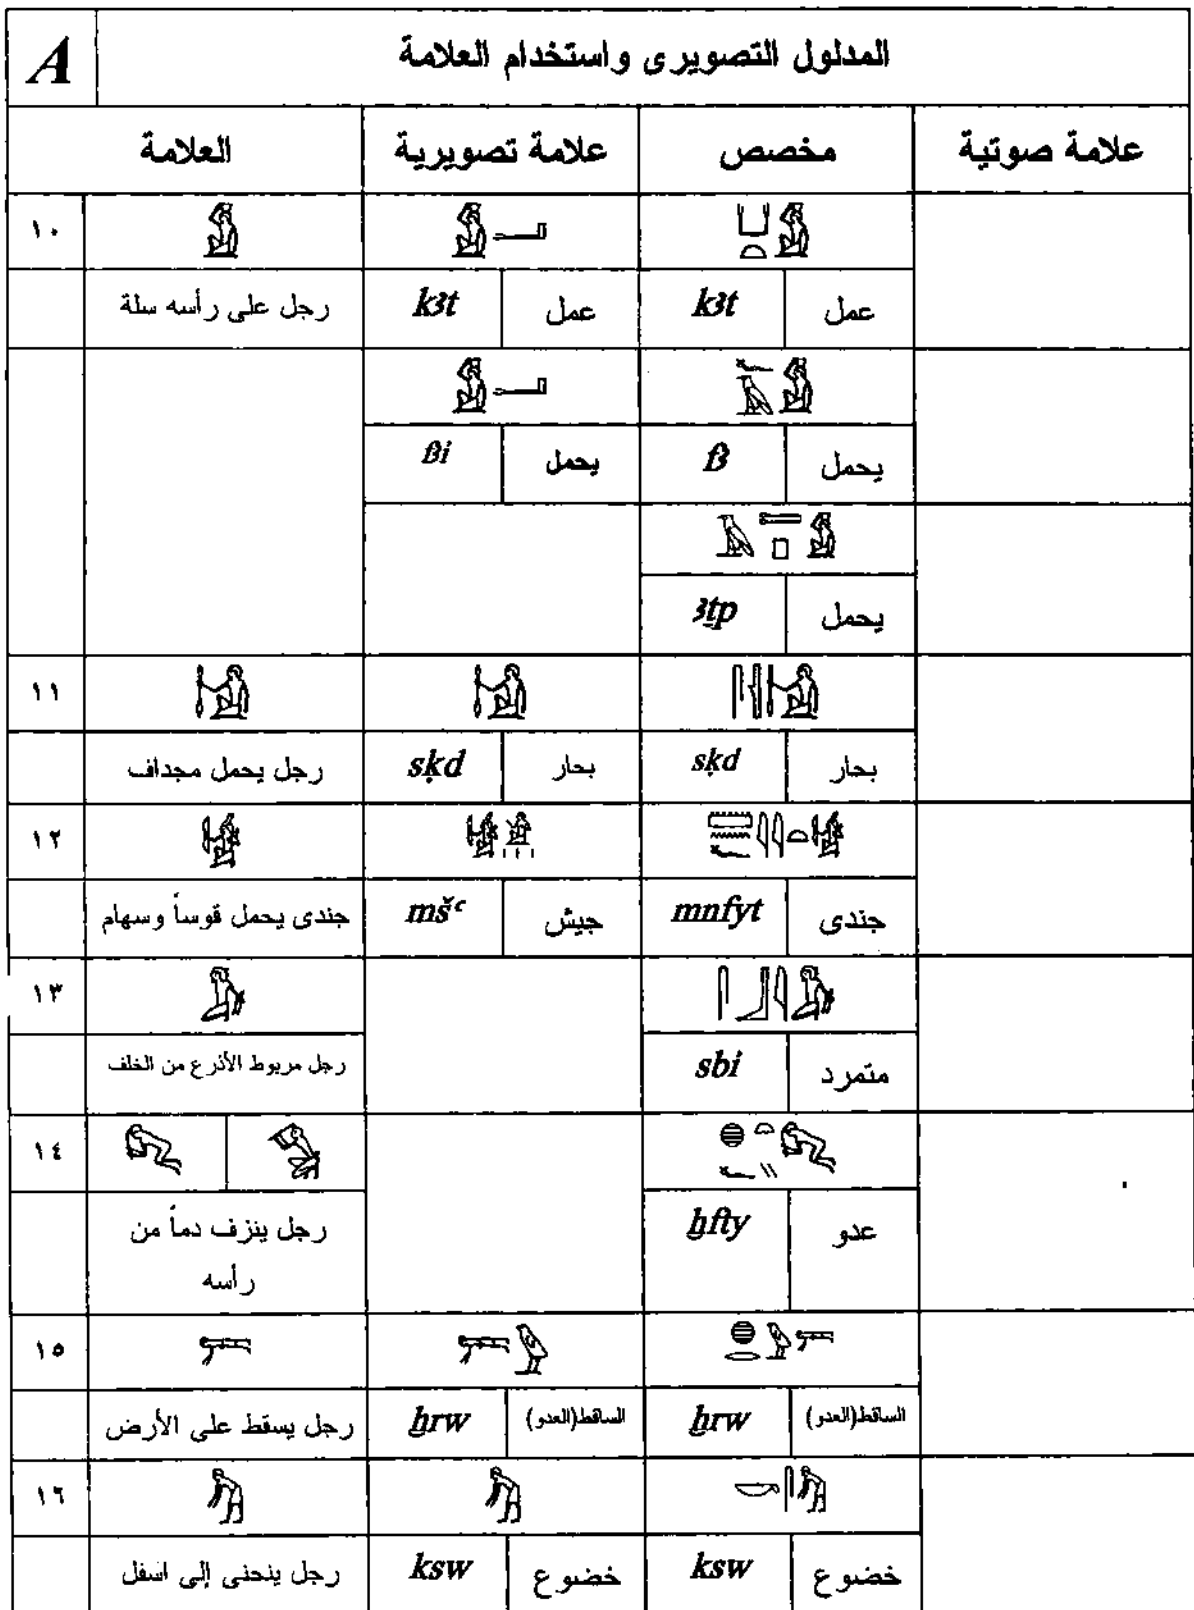 A المدلول التصويرى واستخدام العلامة
العلامة علامة تصويرية مخصص علامة صوتية
١٠
رجل على رأسه سلة k3t عمل k3t عمل
f3i يحمل f3 يحمل
3ṯp يحمل
١١
رجل يحمل مجداف sḳd بحار sḳd بحار
١٢
جندى يحمل قوساً وسهام mšꜥ جيش mnfyt جندى
١٣
رجل مربوط الأذرع من الخلف sbi متمرد
١٤
رجل ينزف دماً من
رأسه
ẖfty عدو
١٥
رجل يسقط على الأرض ẖrw الساقط(العدو) ẖrw الساقط(العدو)
١٦
رجل ينحنى إلى اسفل ksw خضوع ksw خضوع